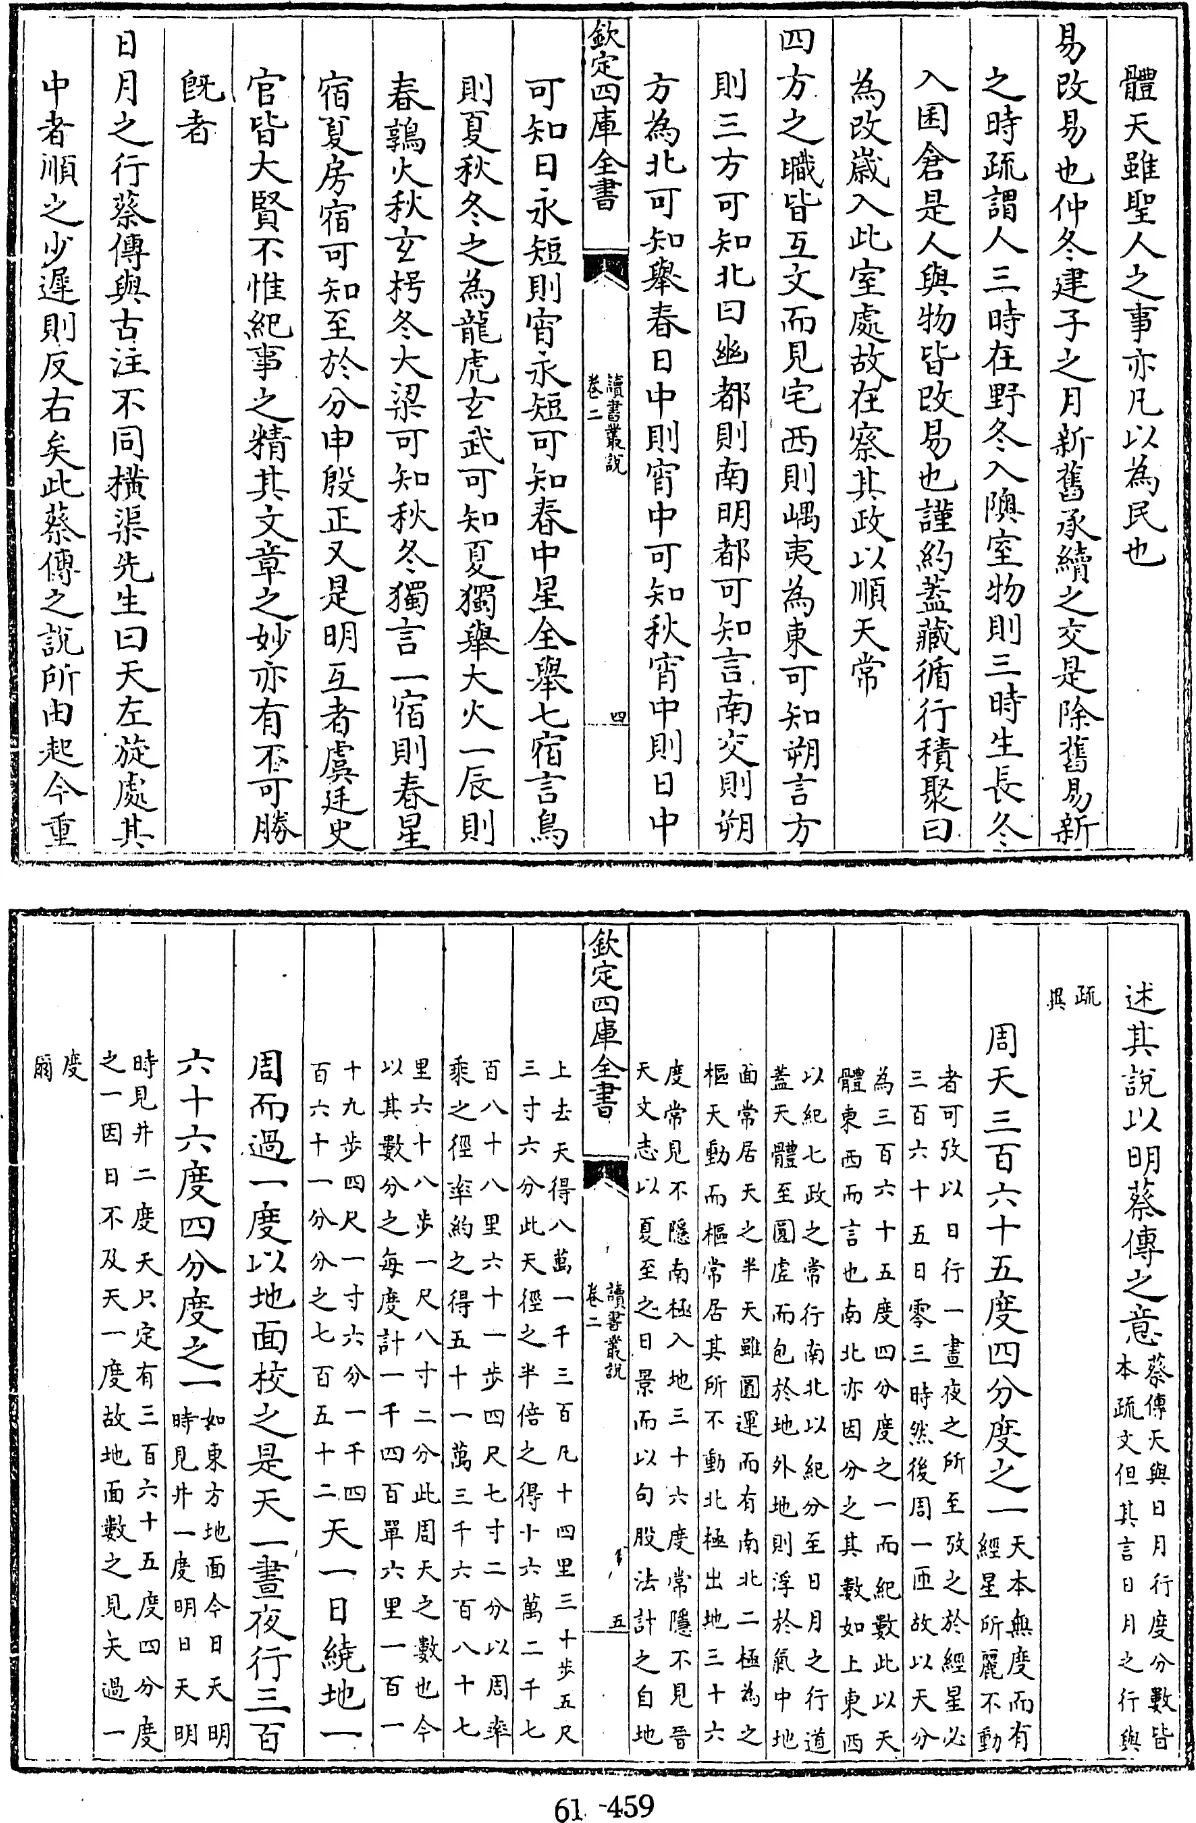 體天雖聖人之事亦凡以為民也
易改易也仲冬建子之月新舊承續之交是除舊易新
之時疏謂人三時在野冬入隩室物則三時生長冬
入囷倉是人與物皆改易也謹約蓋藏循行積聚曰
為改歲入此室處故在察其政以順天常
四方之職皆互文而見宅西則嵎夷為東可知朔言方
則三方可知北曰幽都則南明都可知言南交則朔
方為北可知舉春日中則宵中可知秋宵中則日中
欽定四庫全書
讀書叢說
卷二
四
可知日永短則宵永短可知春中星全舉七宿言鳥
則夏秋冬之為龍虎玄武可知夏獨舉大火一辰則
春鶉火秋玄枵冬大梁可知秋冬獨言一宿則春星
宿夏房宿可知至於分申殷正又是明互者虞廷史
官皆大賢不惟紀事之精其文章之妙亦有不可勝
旣者
日月之行蔡傳與古注不同橫渠先生曰天左旋處其
中者順之少遲則反右矣此蔡傳之說所由起今重
述其說以明蔡傳之意
蔡傳天與日月行度分數皆
本疏文但其言日月之行與
疏
異
周天三百六十五度四分度之一
天本無度而有
經星所麗不動
者可攷以日行一晝夜之所至攷之於經星必
三百六十五日零三時然後周一匝故以天分
為三百六十五度四分度之一而紀數此以天
體東西而言也南北亦因分之其數如上東西
以紀七政之常行南北以紀分至日月之行道
蓋天體至圓虛而包於地外地則浮於氣中地
面常居天之半天雖圓運而有南北二極為之
樞天動而樞常居其所不動北極出地三十六
度常見不隱南極入地三十六度常隱不見晉
天文志以夏至之日景而以句股法計之自地
欽定四庫全書
讀書叢說
卷二
五
上去天得八萬一千三百九十四里三十步五尺
三寸六分此天徑之半倍之得十六萬二千七
百八十八里六十一步四尺七寸二分以周率
乘之徑率約之得五十一萬三千六百八十七
里六十八步一尺八寸二分此周天之數也今
以其數分之每度計一千四百單六里一百一
十九步四尺一寸六分一千四
百六十一分分之七百五十二
天一日繞地一
周而過一度以地面校之是天一晝夜行三百
六十六度四分度之一
如東方地面今日天明
時見井一度明日天明
時見井二度天只定有三百六十五度四分度
之一因日不及天一度故地面數之見天過一
度
爾
61-459